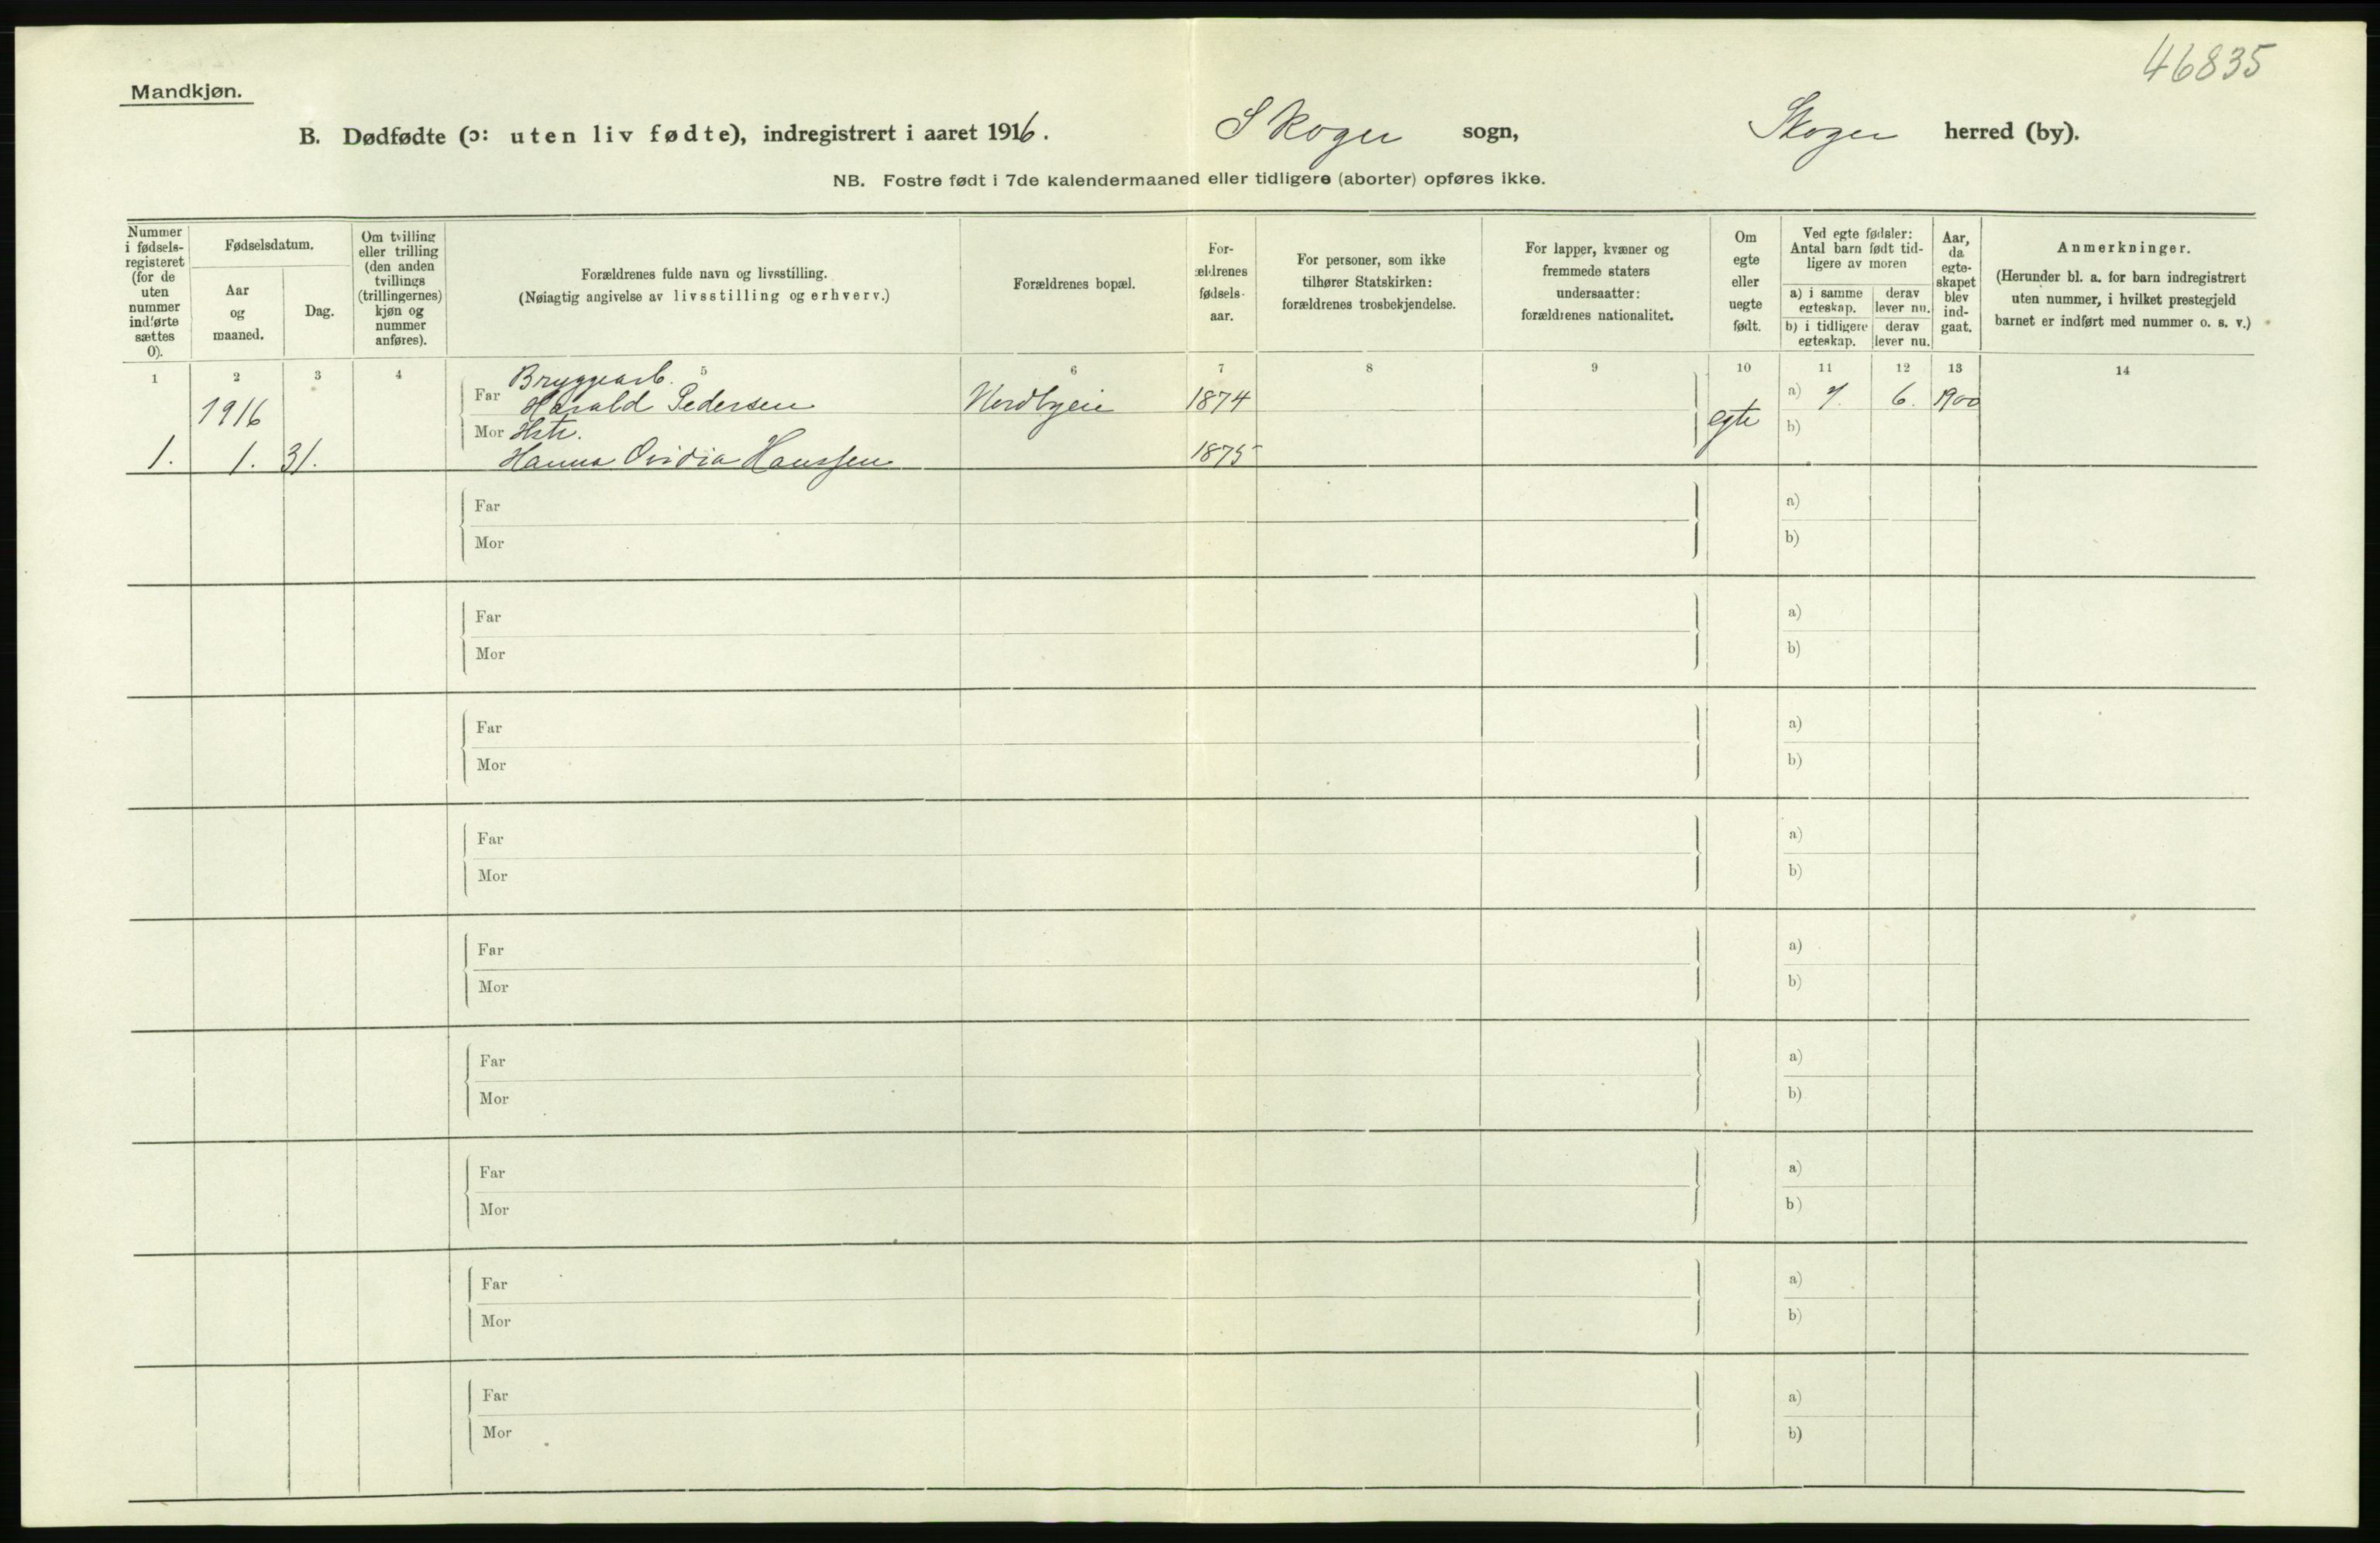 46835
Mandkjøn.
B. Dødfødte (ɔ: uten liv fødte), indregistrert i aaret 1916. Skoger sogn, Skoger herred (by).
NB. Fostre født i 7de kalendermaaned eller tidligere (aborter) opføres ikke.
Nummer i fødsels-registeret (for de uten nummer indførte sættes 0).
Fødselsdatum.
Aar og maaned.
Dag.
Om tvilling eller trilling (den anden tvillings (trillingernes) kjøn og nummer anføres).
Forældrenes fulde navn og livsstilling.
(Nøiagtig angivelse av livsstilling og erhverv.)
Forældrenes bopæl.
For-ældrenes fødsels-aar.
For personer, som ikke tilhører Statskirken: forældrenes trosbekjendelse.
For lapper, kvæner og fremmede staters undersaatter: forældrenes nationalitet.
Om egte eller uegte født.
Ved egte fødsler: Antal barn født tid-ligere av moren
a) i samme egteskap.
derav lever nu.
b) i tidligere egteskap.
derav lever nu.
Aar, da egte-skapet blev ind-gaat.
Anmerkninger.
(Herunder bl. a. for barn indregistrert uten nummer, i hvilket prestegjeld barnet er indført med nummer o. s. v.)
1 2 3 4 5 6 7 8 9 10 11 12 13 14
Bryggearb.
1916 Far Harald Pedersen 1874 a) 7. 6. 1900
Mor Hstr. egte b)
1. 1. 31. Hanna Ovidia Hanssen 1875
Far a)
Mor b)
Far a)
Mor b)
Far a)
Mor b)
Far a)
Mor b)
Far a)
Mor b)
Far a)
Mor b)
Far a)
Mor b)
Far a)
Mor b)
Far a)
Mor b)